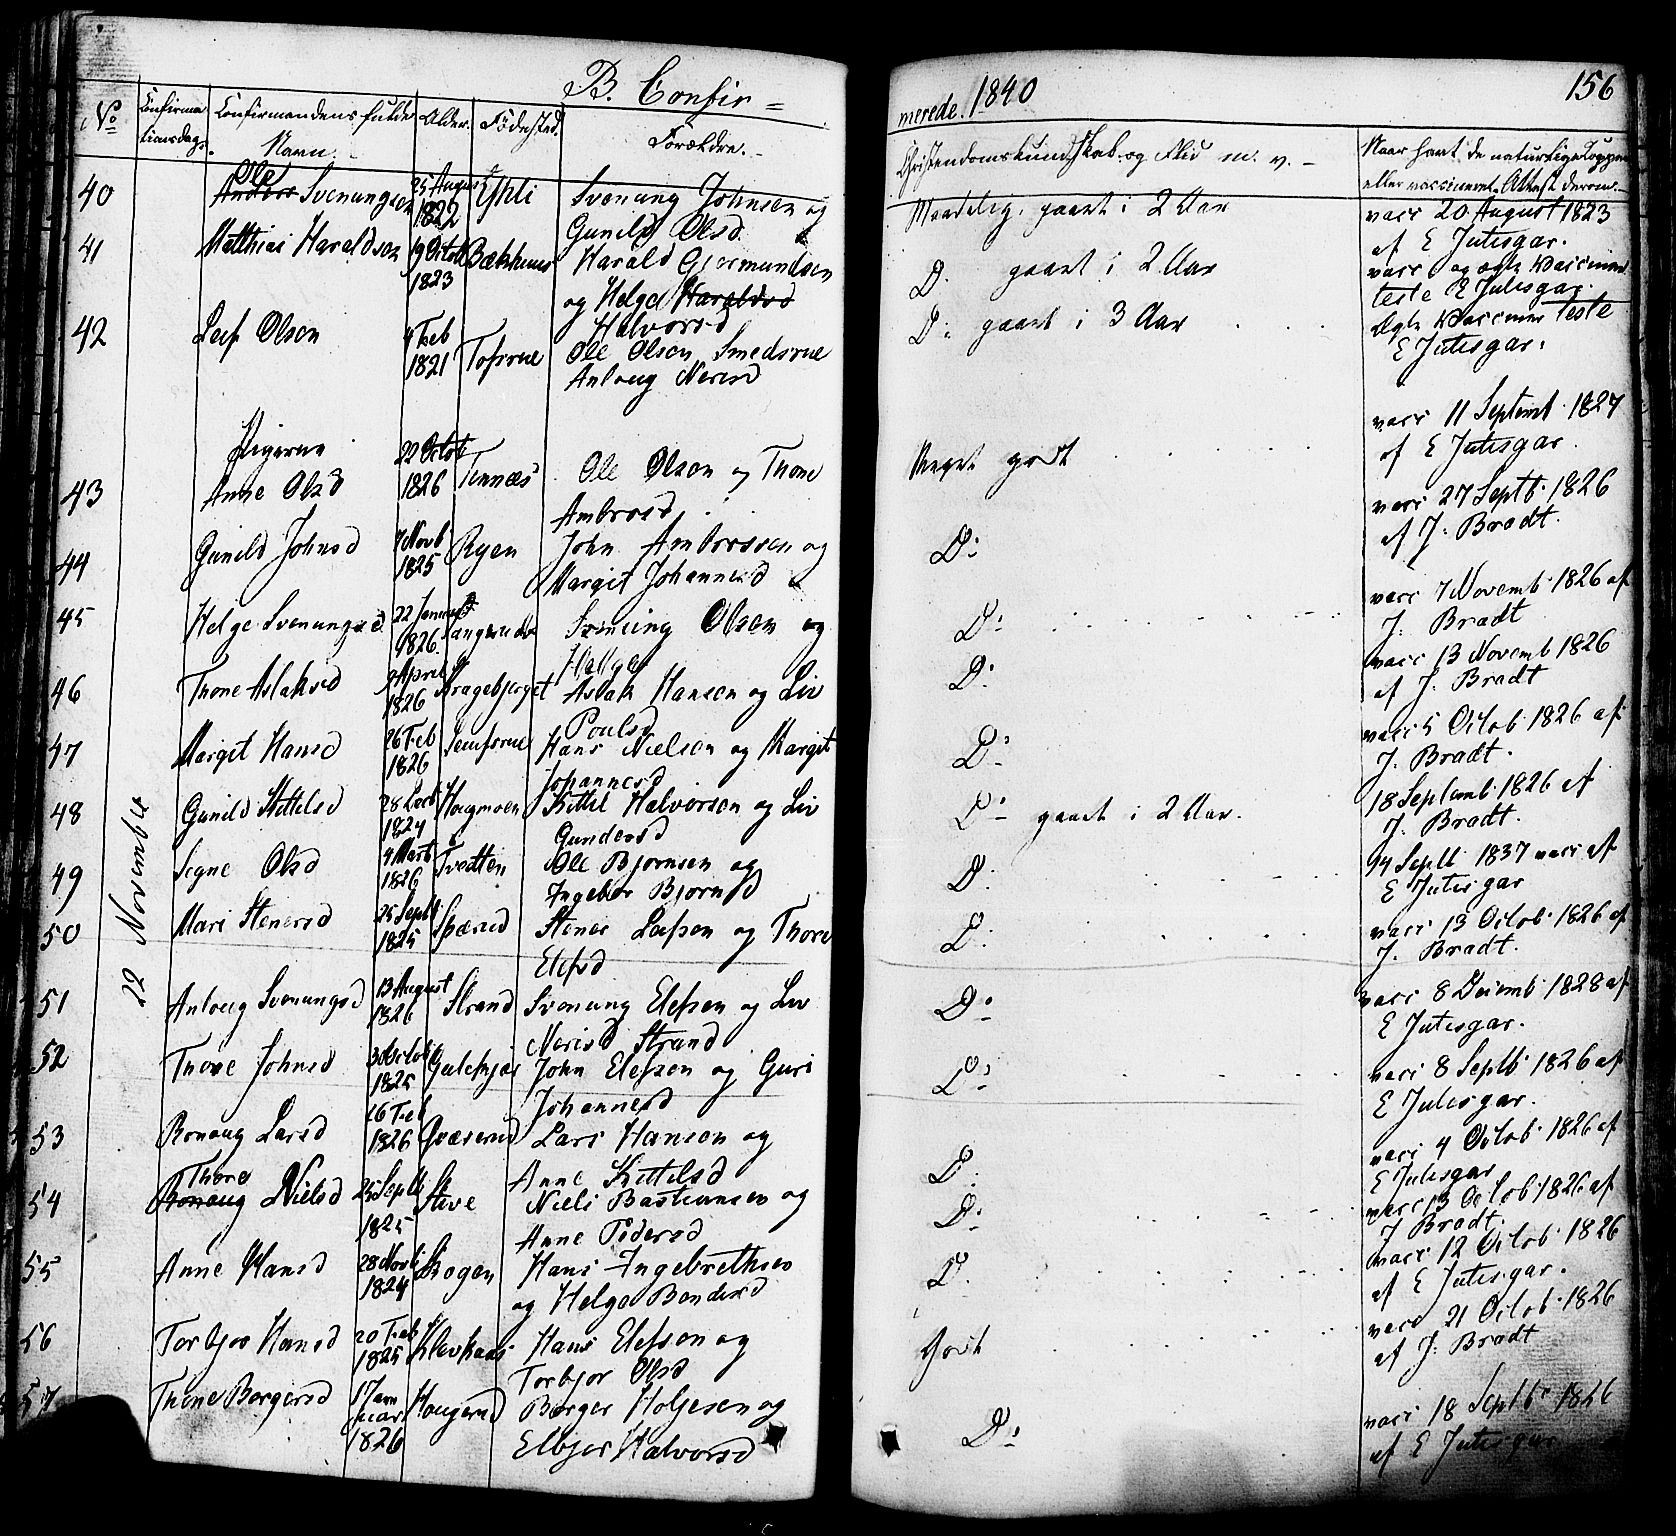 B. Confir=
merede. 1840
156
No
Confirma
tionsdag.
Confirmandens fulde
Navn.
Alder.
Födested.
Forældre.
Christendomskundskab og Flid m. v.
Naar havt de naturlige Copper
eller vaccineret. Attest derom.
40 Ole Svenungsen 25 August 1822 Espli Svenung Johnsen og
Gunild Olsd.
gaaet i 2 Aar
vacc 20 August 1823
af E Julesgar.
41 Matthias Haraldsen 19 Octob 1823 Bækhuus Harald Gjermundsen
og Helge Haraldsd
Halvorsd
D. gaaet i 2 Aar
vacc og ægte Vaccine
teste E Julesgar.
42 Leif Olsen 4 Feb 1821 Tofsrue Ole Olsen Smedsrue
Anlaug Nerisd
D: gaaet i 3 Aar
Ægte Vaccine teste
E Julesgar.
Pigerne
43 Anne Olsd 22 Octob 1826 Tennæs Ole Olsen og Thone
Ambrosd.
Meget godt
vacc 11 Septemb 1827
af E Julesgar.
44 Gunild Johnsd 7 Novb 1825 Ryen John Ambrosen og
Margit Johannesd
D:
vacc 27 Septb. 1826
af J. Bradt.
45 Helge Svenungsd 22 Januar 1826 Svenung Olsen og
Helge
D:
vacc 7 Novemb. 1826 af
J. Bradt
46 Thone Aslaksd 9 April 1826 Kragebjerget Aslak Hansen og Liv
Poulsd
D:
vacc 13 Novemb 1826
af J. Bradt
47 Margit Hansd 26 Feb 1826 Hans Nielsen og Margit
Johannesd
D:
vacc 5 Octob. 1826 af
J. Bradt.
48 Gunild Kittelsd 28 1824 Hougmoen Kittil Halvorsen og Liv
Gundersd
D: gaaet i 2 Aar.
18 Septemb. 1826 af
J. Bradt.
49 Signe Olsd 4 Marts 1826 Tvedten Ole Bjørnsen og
Ingebor Bjørnsd
D:
14 Septb 1837 vacc af
E Julesgar
50 Mari Stenersd 25 Septb 1825 Spærud Stener Leifsen og Thore
Elefsd
D:
vacc 13 Octob. 1826 af
J. Bradt.
51 Anlaug Svenungsd 13 August 1826 Strand Svenung Elefsen og Liv
Nerisd Strand
D:
vacc 8 Decemb. 1828 af
E Julesgar.
52 Thore Johnsd 30 Octob 1825 John Elefsen og Guri
Johannesd
D:
vacc 8 Septb. 1826 af
E Julesgar.
53 Ronaug Larsd 16 Feb 1826 Qværerud Lars Hansen og
Anne Kittelsd
D:
vacc 4 Octob. 1826 af
E Julesgar
54 Thore
Ronaug Nielsd 25 Septb 1825 Niels Bastiansen og
Anne Pedersd
D:
vacc 13 Octob. 1826 af
J Bradt.
55 Anne Hansd 28 Novb 1824 Skogen Hans Ingebrethsen
og Helge Bendesd
D.
vacc 12 Octob. 1826
af E Julesgar.
56 Torbjør Hansd 20 Feb 1825 Klevkaas Hans Elefsen og
Torbjør Olsd
Godt
vacc 21 Octob. 1826
af J. Bradt
57 Thone Børgersd 1 Januar 1826 Hougerud Børger Holjesen og
Elbjør Halvorsd
D:
vacc 18 Septb. 1826
af E Julesgar